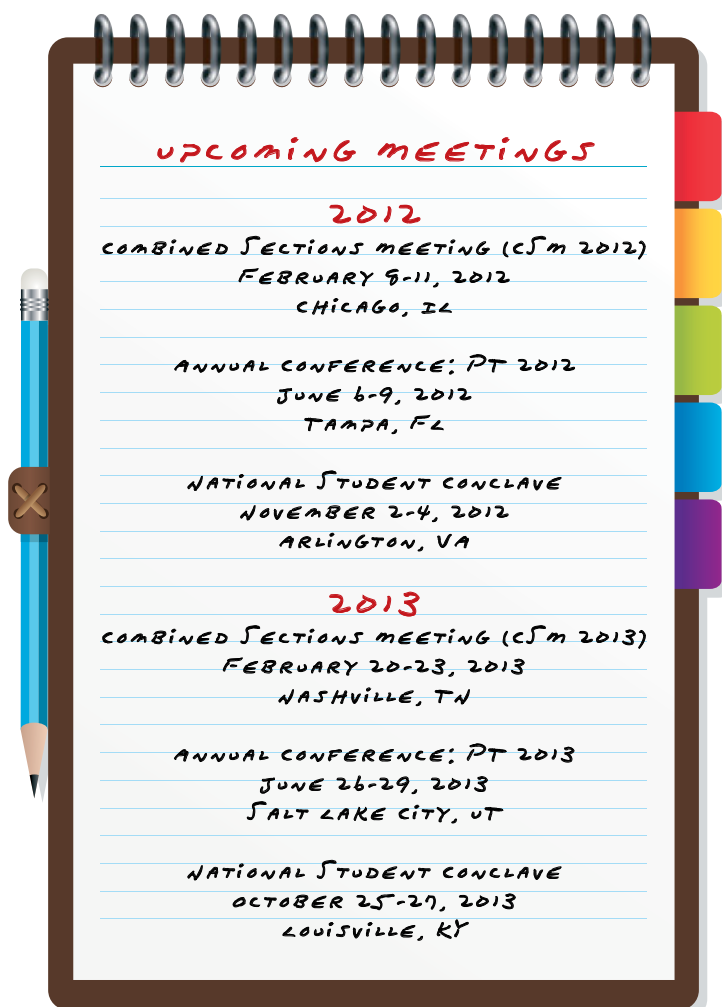 UPCOMING MEETINGS
2012
COMBINED SECTIONS MEETING (CSM 2012)
FEBRUARY 8-11, 2012
CHICAGO, IL
ANNUAL CONFERENCE: PT 2012
JUNE 6-9, 2012
TAMPA, FL
NATIONAL STUDENT CONCLAVE
NOVEMBER 2-4, 2012
ARLINGTON, VA
2013
COMBINED SECTIONS MEETING (CSM 2013)
FEBRUARY 20-23, 2013
NASHVILLE, TN
ANNUAL CONFERENCE: PT 2013
JUNE 26-29, 2013
SALT LAKE CITY, UT
NATIONAL STUDENT CONCLAVE
OCTOBER 25-27, 2013
LOUISVILLE, KY